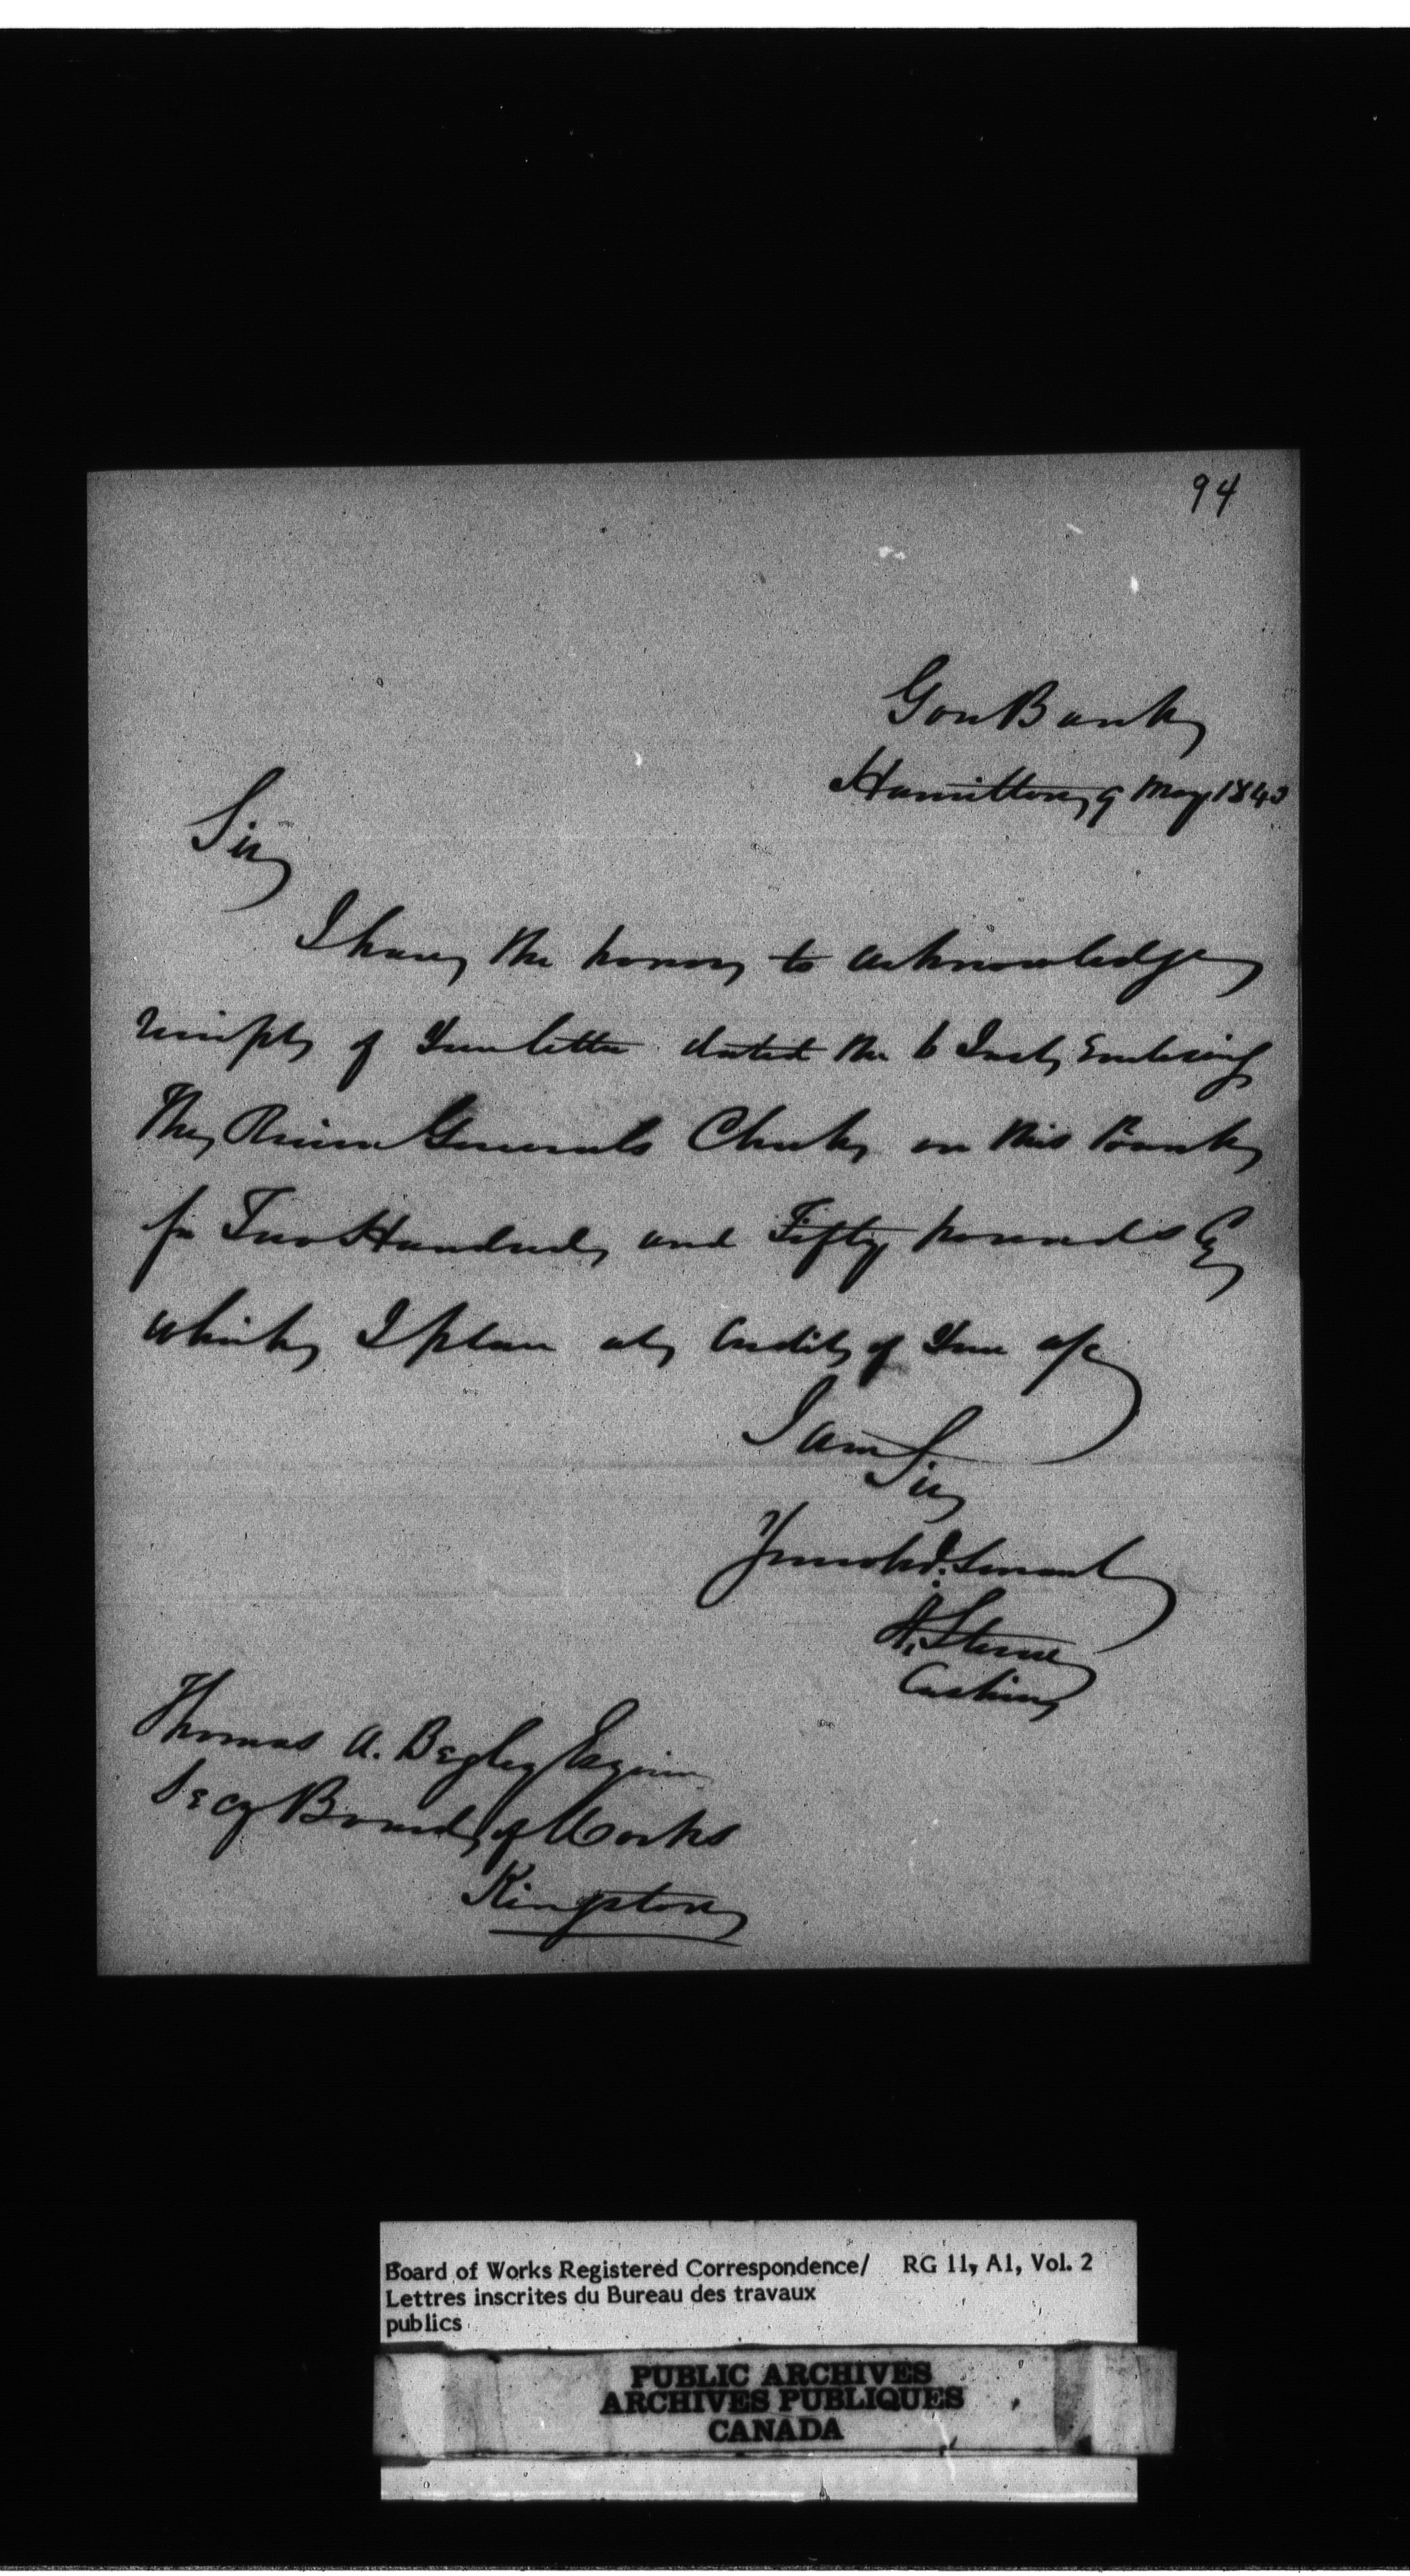 94
Gore Bank
Hamilton 9 May 1843
Sir
I have the honor to acknowledge
receipt of Your letter dated the 6 Inst, Enclosing
The Receiver Generals Check on this Bank
for Two Hundred and Fifty pounds Cy
which I place at Credit of Your a/c
I am Sir
Your obd. Servant
A. Steven
Cashier
Thomas A. Begley Esquire
Secy Board of Works
Kingston
Board of Works Registered Correspondence/ RG 11, A1, Vol. 2
Lettres inscrites du Bureau des travaux
publics
PUBLIC ARCHIVES
ARCHIVES PUBLIQUES
CANADA